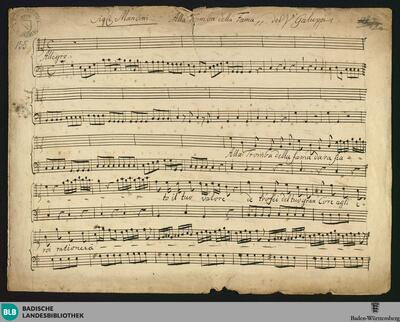 Sigr. Mancini Alla Tromba della Fama del Sr Galuppi
Allegro
Alla Tromba della fama dara fia
to il tuo valore de trofei del tuo gran Core agli e
roi ragionerà
BLB
BADISCHE
LANDESBIBLIOTHEK
Baden-Württemberg